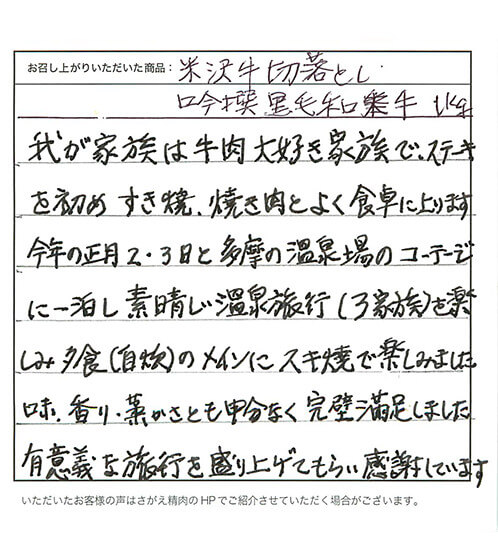 お召し上がりいただいた商品： 米沢牛切落とし
吟撰黒毛和牛 1kg
我が家族は牛肉大好き家族で、ステーキ
を初め すき焼、焼き肉とよく食卓に上ります
今年の正月2・3日と多摩の温泉場のコテージ
に一泊し 素晴しい温泉旅行(3家族)を楽
しみ 夕食(自炊)のメインに スキ焼で楽しみました
味、香り・ かさとも申分なく 完璧満足しました
有意義な旅行を盛り上げてもらい感謝しています
いただいたお客様の声はさがえ精肉のHPでご紹介させていただく場合がございます。